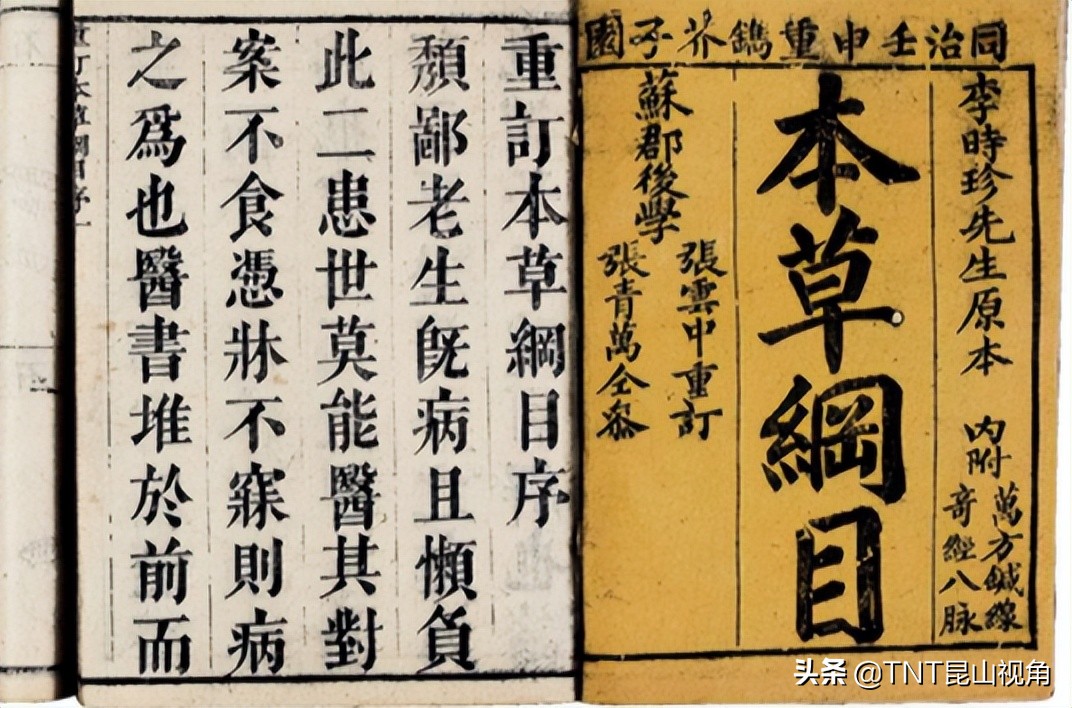 同治壬申重鐫芥子園
李時珍先生原本
內附
萬方鍼線
奇經八脉
本草綱目
蘇郡後學
張雲中重訂
張青萬仝叅
重訂本草綱目序
頽鄙老生旣病且懶負
此二患世莫能醫其對
案不食憑牀不寐則病
之爲也醫書堆於前而
头条 @TNT昆山视角